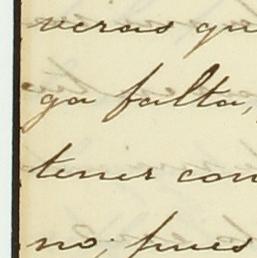 veras qu
ga falta,
tener con
no; pues